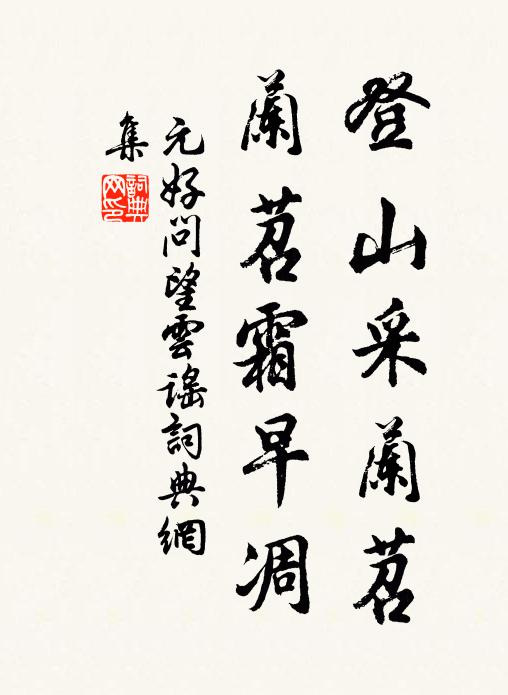 登山采蘭苕
蘭苕霜早凋
元好問望雲謠詞典網
集
詞典網印